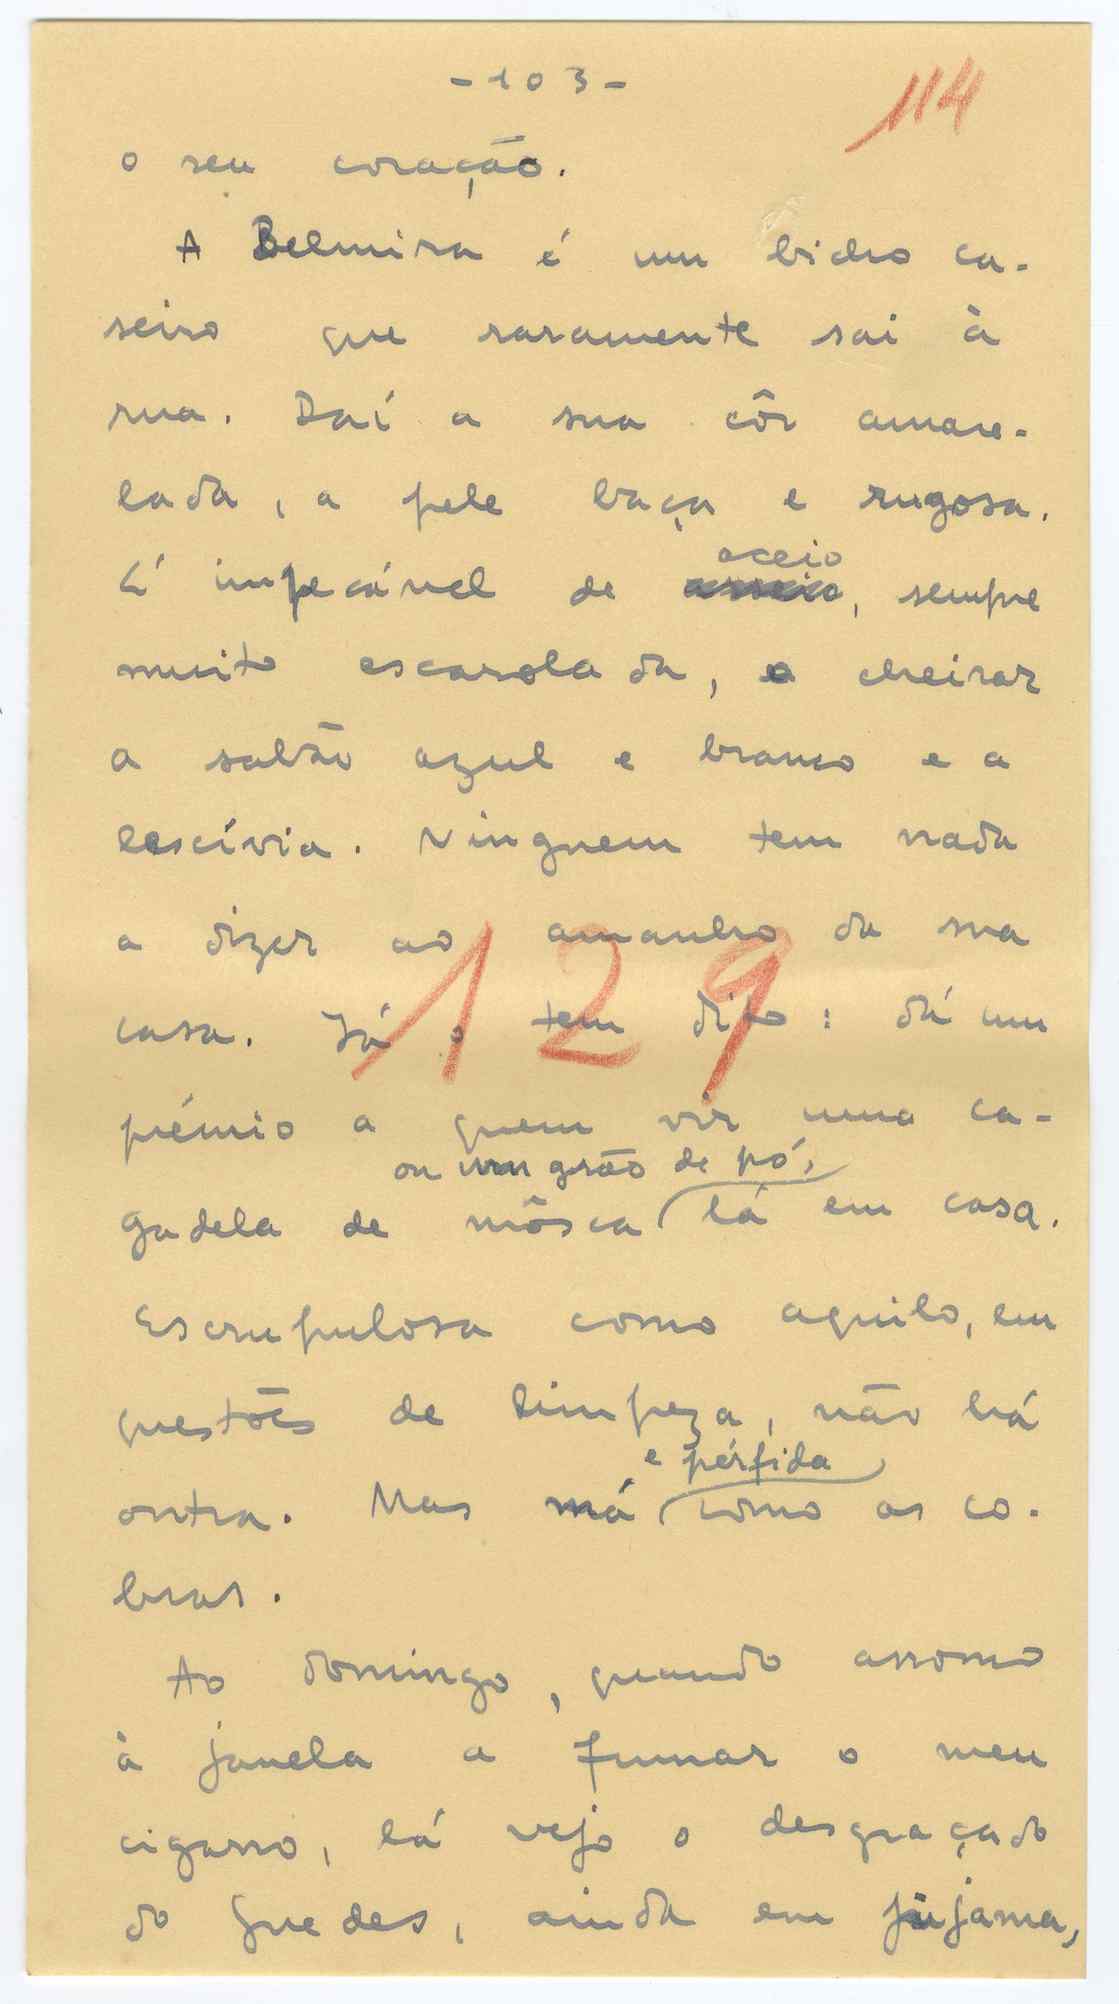 -103-
114
o seu coração.
A Belmira é um bicho ca-
seiro que raramente sai à
rua. Daí a sua côr amare-
lada, a pele baça e rugosa.
aceio
É impecável de asseio, sempre
muito escarolada, a cheirar
a sabão azul e branco e a
lescívia. Ninguem tem nada
a dizer ao amanho da sua
129
casa. Já o tem dito: dá um
prémio a quem vir uma ca-
ou um grão de pó,
gadela de môsca lá em casa.
Escrupulosa como aquilo, em
questões de limpeza, não há
e pérfida
outra. Mas má como as co-
bras.
Ao domingo, quando assomo
à janela a fumar o meu
cigarro, lá vejo o desgraçado
do Guedes, ainda em pijama,